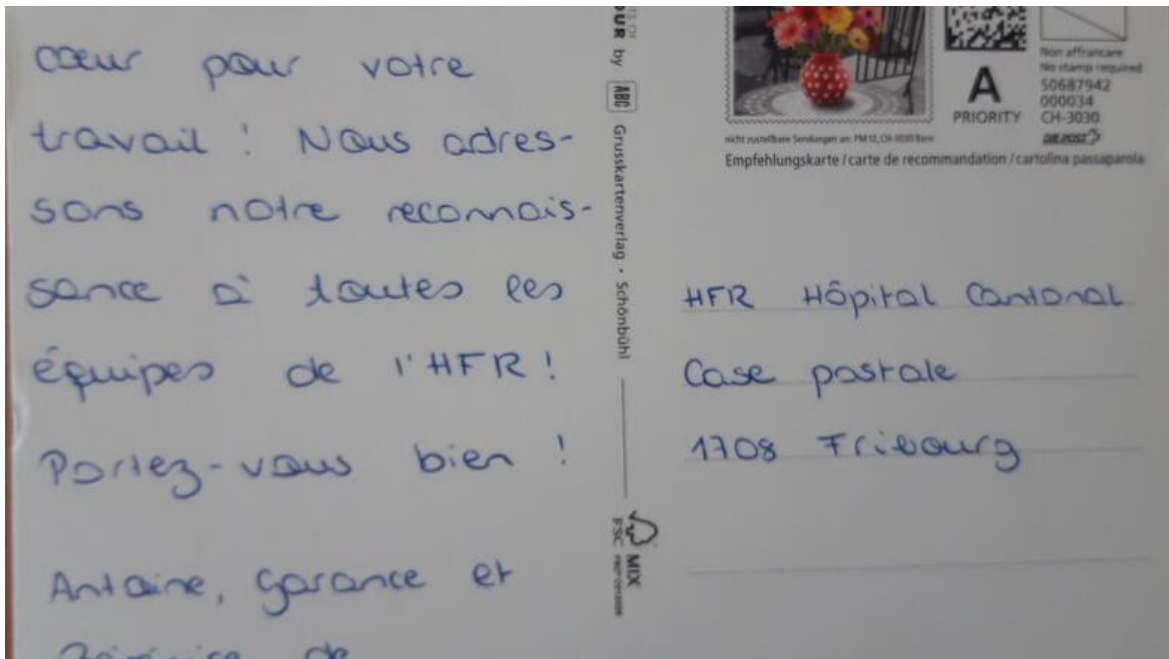 cœur pour votre
travail ! Nous adres-
sons notre reconnais-
sance à toutes les
équipes de l'HFR !
Portez-vous bien !
Antoine, Garance et
de
OUR by ABC Grusskartenverlag • Schönbühl
MIX
FSC
A
PRIORITY
Non affrancare
No stamp required
50687942
000034
CH-3030
DIE POST
nicht zustellbare Sendungen an: PM 12, CH-3030 Bern
Empfehlungskarte / carte de recommandation / cartolina passaparola
HFR Hôpital Cantonal
Case postale
1708 Fribourg